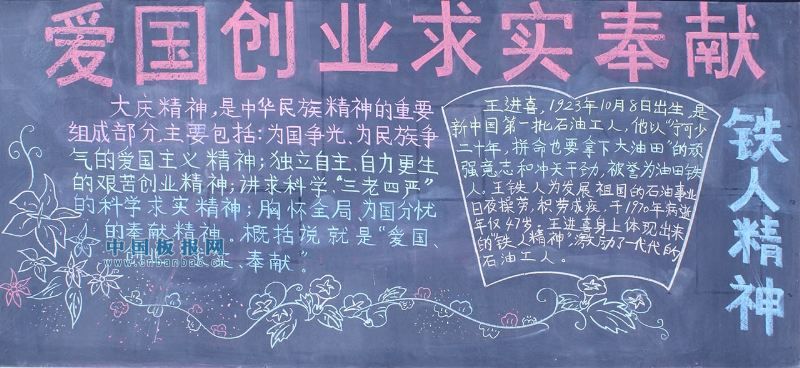 爱国创业求实奉献
大庆精神,是中华民族精神的重要
组成部分,主要包括:为国争光、为民族争
气的爱国主义精神;独立自主、自力更生
的艰苦创业精神;讲求科学、“三老四严”
的科学求实精神;胸怀全局、为国分忧
的奉献精神。概括说就是“爱国、
奉献”。
王进喜,1923年10月8日出生,是
新中国第一批石油工人,他以“宁可少
二十年,拼命也要拿下大油田”的顽
强意志和冲天干劲,被誉为油田铁
人。王铁人为发展祖国的石油事业
日夜操劳,积劳成疾,于1970年病逝
年仅47岁。王进喜身上体现出来
的“铁人精神”,激励了一代代的
石油工人。
铁人精神
中国板报网
www.cnbanbao.cn